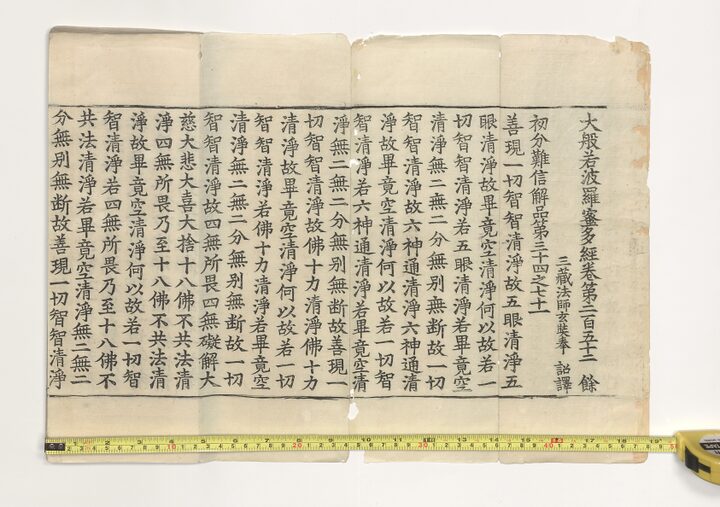 大般若波羅蜜多經卷第二百五十二 餘
三藏法師玄奘奉 詔譯
初分難信解品第三十四之七十一
善現一切智智清淨故五眼清淨五
眼清淨故畢竟空清淨何以故若一
切智智清淨若五眼清淨若畢竟空
清淨無二無二分無別無斷故一切
智智清淨故六神通清淨六神通清
淨故畢竟空清淨何以故若一切智
智清淨若六神通清淨若畢竟空清
淨無二無二分無別無斷故善現一
切智智清淨故佛十力清淨佛十力
清淨故畢竟空清淨何以故若一切
智智清淨若佛十力清淨若畢竟空
清淨無二無二分無別無斷故一切
智智清淨故四無所畏四無礙解大
慈大悲大喜大捨十八佛不共法清
淨四無所畏乃至十八佛不共法清
淨故畢竟空清淨何以故若一切智
智清淨若四無所畏乃至十八佛不
共法清淨若畢竟空清淨無二無二
分無別無斷故善現一切智智清淨